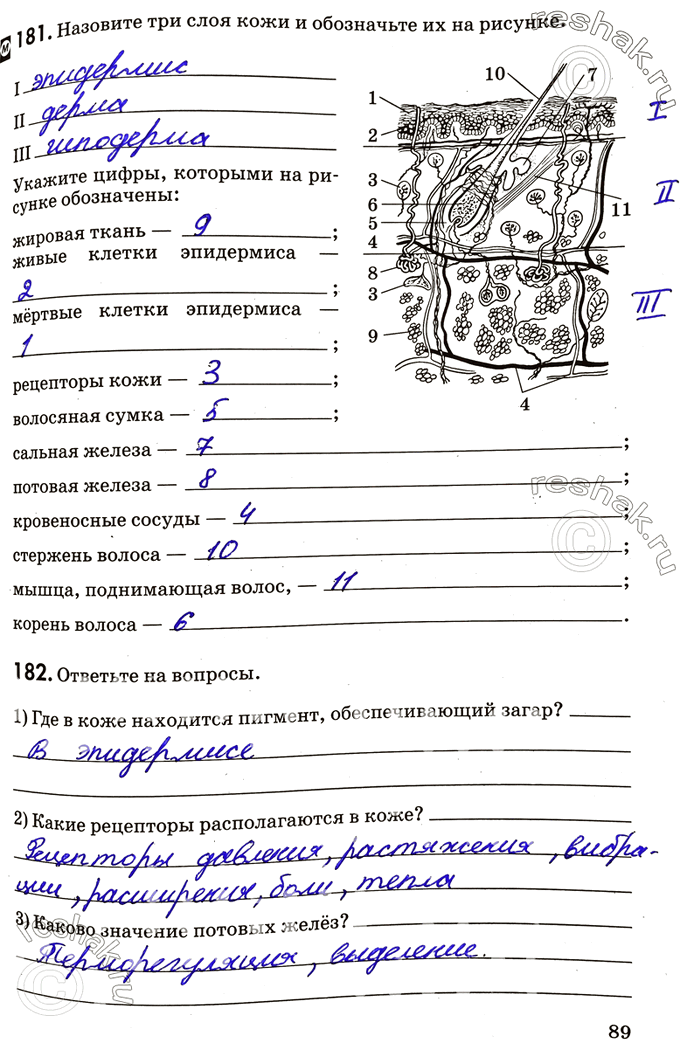 181. Назовите три слоя кожи и обозначьте их на рисунке.
I эпидермис
II дерма
III гиподерма
Укажите цифры, которыми на ри-
сунке обозначены:
жировая ткань — 9 ;
живые клетки эпидермиса —
2 ;
мёртвые клетки эпидермиса —
1 ;
рецепторы кожи — 3 ;
волосяная сумка — 5 ;
сальная железа — 7 ;
потовая железа — 8 ;
кровеносные сосуды — 4 ;
стержень волоса — 10 ;
мышца, поднимающая волос, — 11 ;
корень волоса — 6 .
10 7
1
2
3
6
5
4
8
3
9
11
4
I
II
III
182. Ответьте на вопросы.
1) Где в коже находится пигмент, обеспечивающий загар?
В эпидермисе
2) Какие рецепторы располагаются в коже?
Рецепторы давления, растяжения, вибра-
ции, расширения, боли, тепла
3) Каково значение потовых желёз?
Терморегуляция, выделение.
89
reshak.ru
©
reshak.ru
©
reshak.ru
©